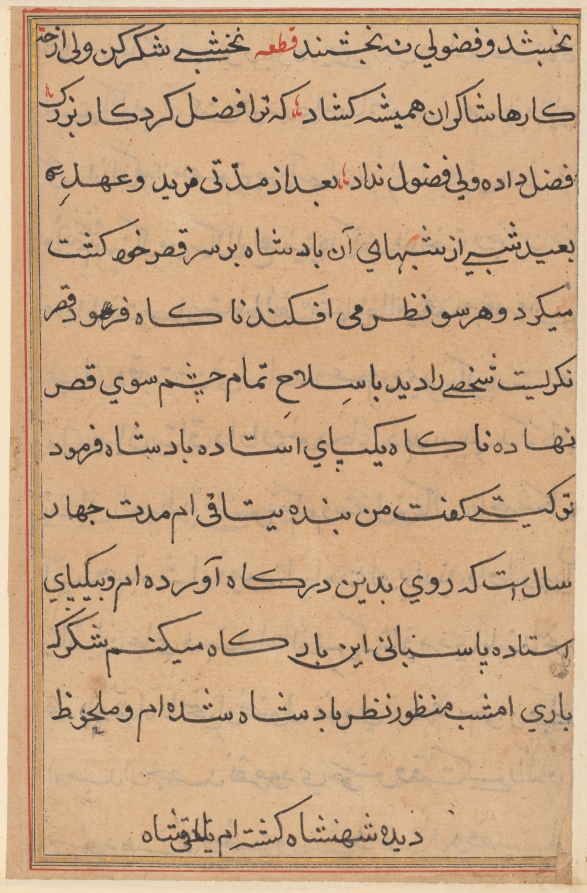 نخسبد و فضولي نه بخشند قطعه نخشبے شکر کن ولی از حق
کارها شاکران همیشه کشاد که ترا فضل کرد کار بزرک
فضل داده ولی فضول نداد بعد از مدّتی مزید و عهدِ
بعید شبے از شبهاي آن بادشاه بر سر قصر خود کشت
میکرد و هر سو نظر می افکند ناکاه فرود قصر
نکریست شخصے را دید با سلاحِ تمام چشم سوي قصر
نهاده ناکاه بیکپاي استاده بادشاه فرمود
تو کیستے کفت من بنده یتاقی ام مدت چهار
سال است که روي بدین درکاه آورده ام و بیکپاي
استاده پاسبانی این بارکاه میکنم شکر که
باري امشب منظور نظر بادشاه شده ام و ملحوظ
دیده شهنشاه کشته ام